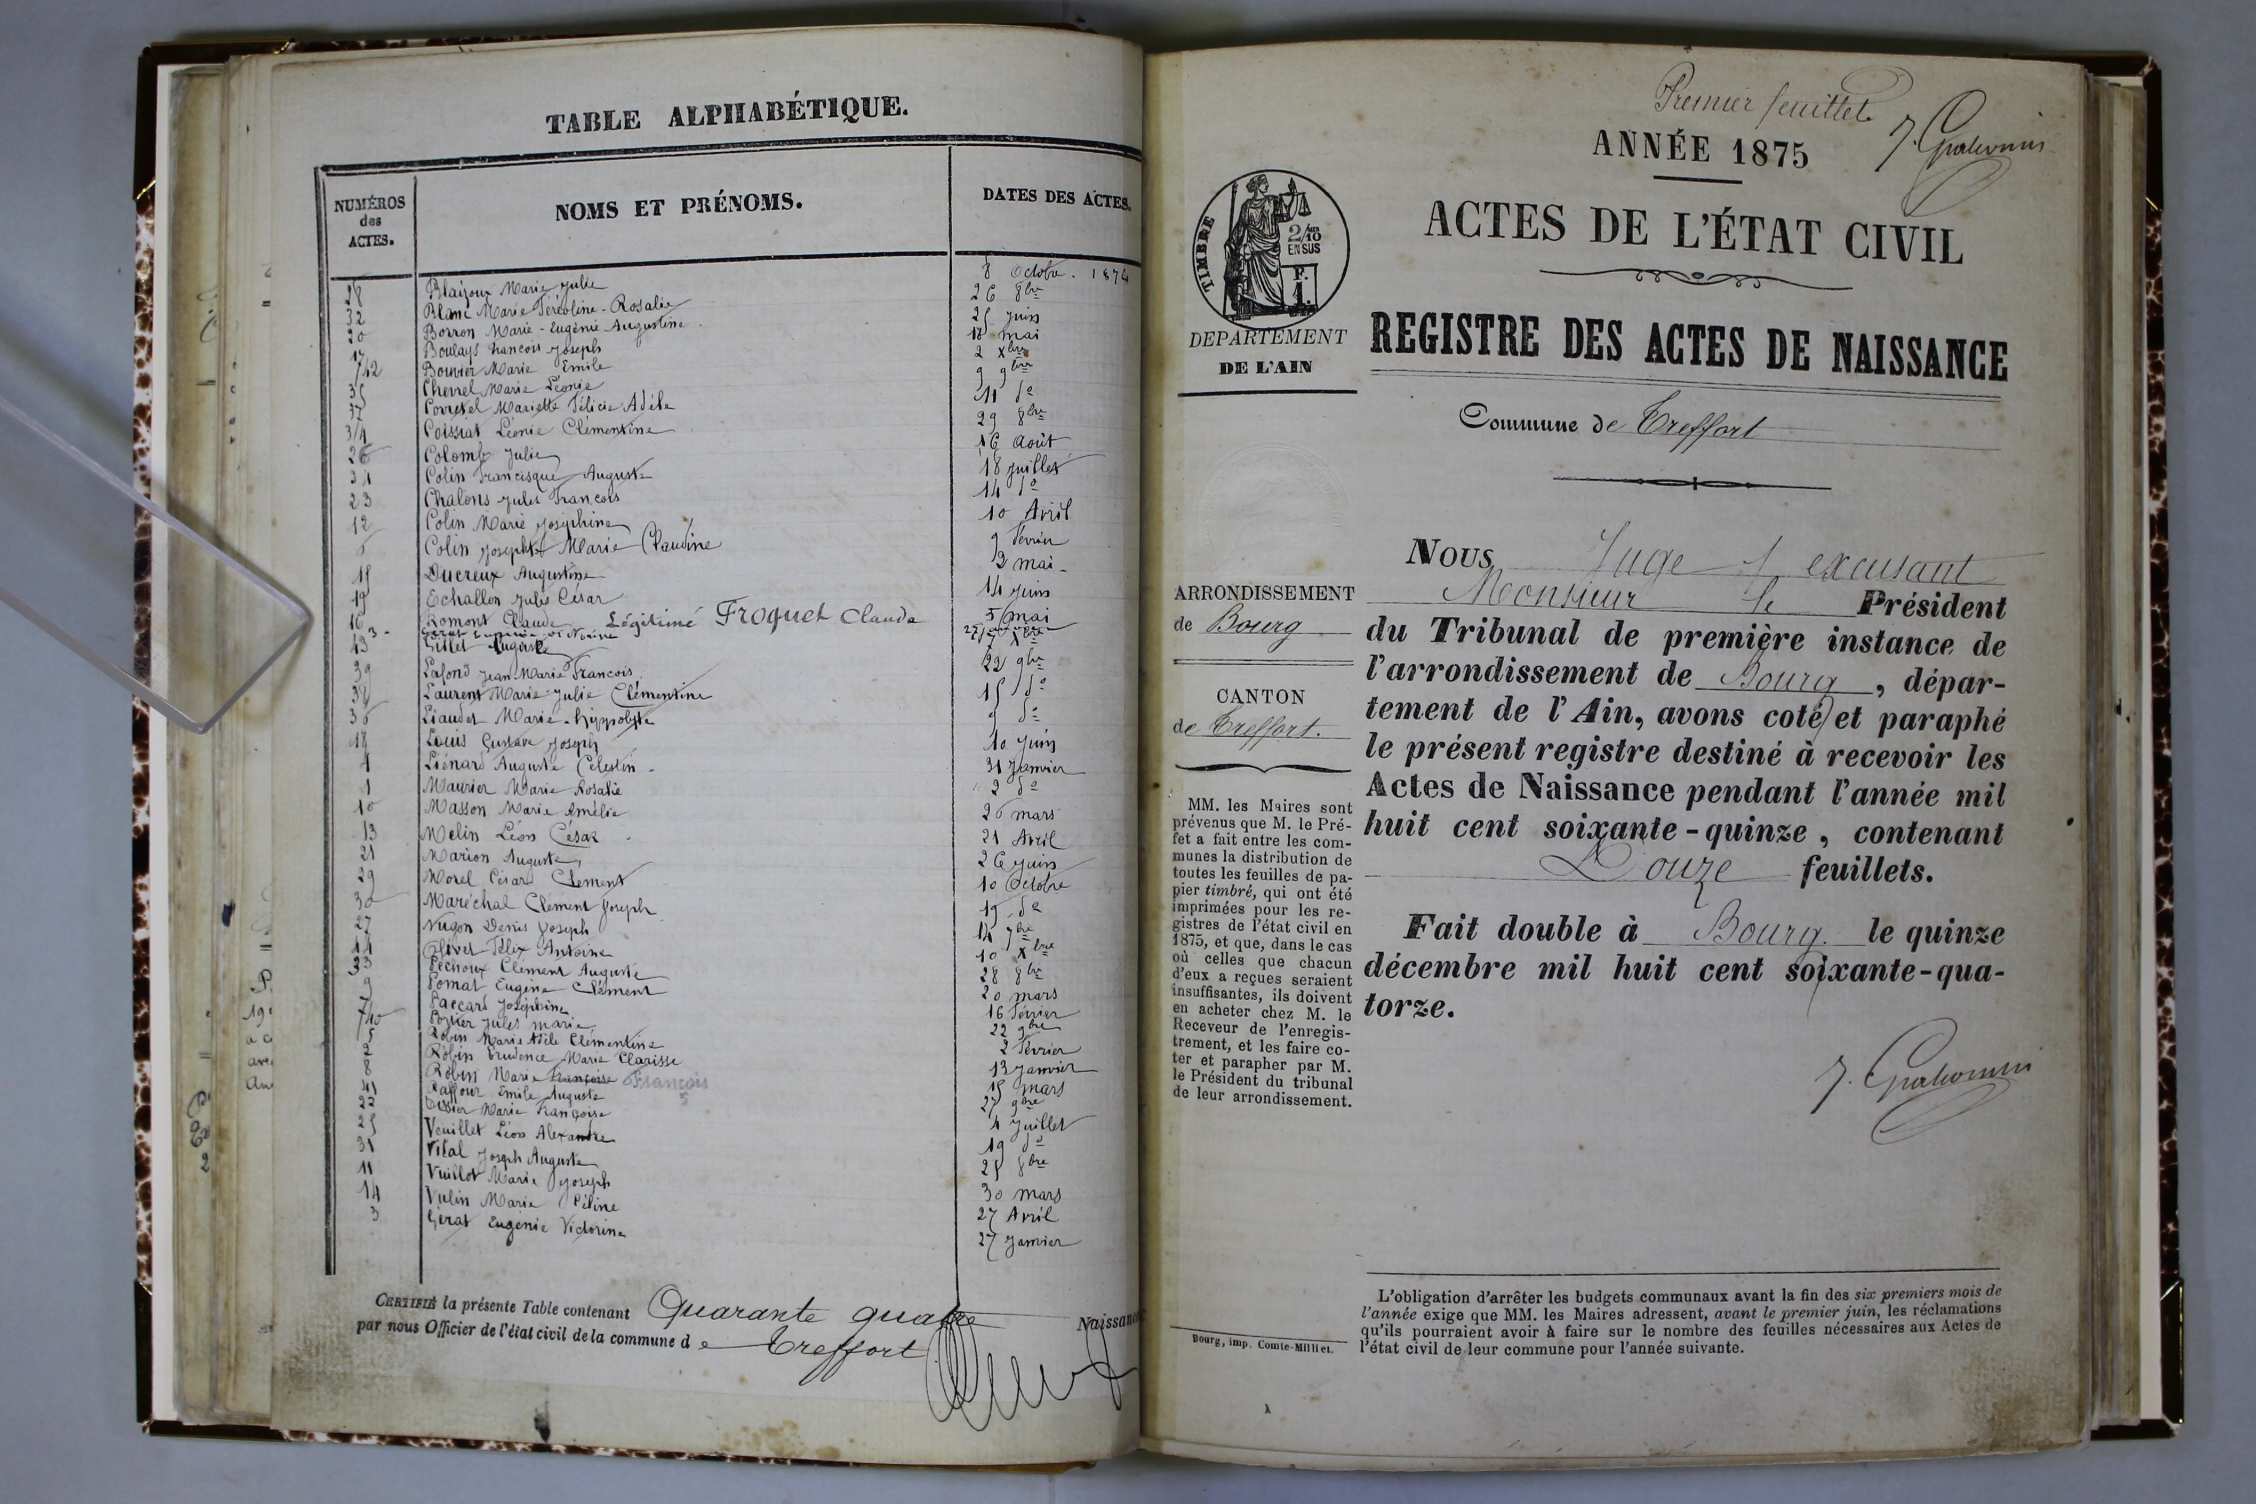 TABLE ALPHABÉTIQUE.
NUMÉROS
des
ACTES.
NOMS ET PRÉNOMS.
DATES DES ACTES.
28 Blaizoux Marie Julie 8 Octobre. 1874
32 Blanc Marie Rosalie 26 8bre
20 Borron Marie-Eugénie-Augustine 25 juin
17 Boulays François Joseph 18 mai
42 Bouvier Marie Emile 2 Xbre
35 Chevrel Marie Léonie 9 9bre
37 Corretel Mariette Félicie Adèle 11 do
34 Coissiat Léonie Clémentine 29 8bre
26 Colomb Julie 16 Août
24 Colin Francisque Auguste 18 juillet
23 Chalons Jules François 14 do
12 Colin Marie Joséphine 10 Avril
6 Colin Josephte Marie Claudine 9 février
15 Ducreux Augustine 2 mai
19 Echallon Jules César 14 juin
16 Romont Claude Légitimé Froquet Claude 5 mai
43 Gillet Auguste Xbre
39 Lafond Jean-Marie François 22 9bre
38 Laurent Marie-Julie Clémentine 15 do
36 Liaudet Marie-hippolyte 9 do
18 Louis Gustave Joseph 10 juin
4 Liénard Auguste Célestin 31 Janvier
1 Maurier Marie Rosalie 2 do
10 Masson Marie Amélie 26 mars
13 Melin Léon César 21 Avril
21 Marion Auguste 26 juin
29 Morel César Clément 10 Octobre
30 Maréchal Clément Joseph 19 do
27 Nugon Denis Joseph 14 7bre
44 Olivet Félix Antoine 10 Xbre
33 Péchoux Clément Auguste 28 8bre
9 Pomat Eugène Clément 20 mars
7 Paccard Joséphine 16 février
40 Poncet Jules Marie 22 9bre
5 Robin Marie Adèle Clémentine 2 février
2 Robin Prudence Marie Clarisse 13 janvier
8 Robin Marie Françoise François 15 mars
41 Raffour Emile Auguste 27 9bre
22 Tissier Marie Françoise 4 juillet
25 Veuillet Léon Alexandre 19 do
31 Vital Joseph Auguste 25 8bre
11 Vuillot Marie Joseph 30 mars
14 Vulin Marie Céline 27 Avril
3 Gérat Eugénie Victorine 27 janvier
CERTIFIÉ la présente Table contenant Quarante quatre Naissances
par nous Officier de l'état civil de la commune de Treffort
Premier feuillet.
ANNÉE 1875
ACTES DE L'ÉTAT CIVIL
TIMBRE
2/10
EN SUS
F.
1.
REGISTRE DES ACTES DE NAISSANCE
DEPARTEMENT
DE L'AIN
Commune de Treffort
Nous Juge excusant
Monsieur le Président
du Tribunal de première instance de
l'arrondissement de Bourg, dépar-
tement de l'Ain, avons coté et paraphé
le présent registre destiné à recevoir les
Actes de Naissance pendant l'année mil
huit cent soixante-quinze, contenant
Douze feuillets.
Fait double à Bourg. le quinze
décembre mil huit cent soixante-qua-
torze.
ARRONDISSEMENT
de Bourg
CANTON
de Treffort.
MM. les Maires sont
prévenus que M. le Pré-
fet a fait entre les com-
munes la distribution de
toutes les feuilles de pa-
pier timbré, qui ont été
imprimées pour les re-
gistres de l'état civil en
1875, et que, dans le cas
où celles que chacun
d'eux a reçues seraient
insuffisantes, ils doivent
en acheter chez M. le
Receveur de l'enregis-
trement, et les faire co-
ter et parapher par M.
le Président du tribunal
de leur arrondissement.
L'obligation d'arrêter les budgets communaux avant la fin des six premiers mois de
l'année exige que MM. les Maires adressent, avant le premier juin, les réclamations
qu'ils pourraient avoir à faire sur le nombre des feuilles nécessaires aux Actes de
l'état civil de leur commune pour l'année suivante.
Bourg, imp. Comte-Milliet.